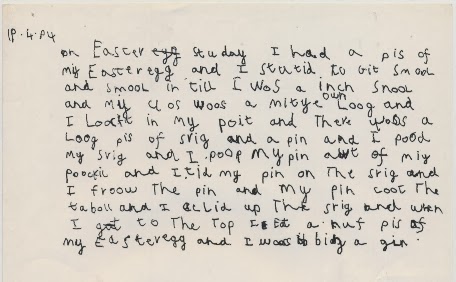 19.4.84
on Easter egg studay I had a pis of
my Easter egg and I statid to git smool
and smool in till I was a inch smool
and my clos woos a mitye own Loog and
I Lookt in my poit and There woos a
Loog pis of srig and a pin and I pood
my srig and I poop my pin awt of miy
poockit and I tid my pin on The srig and
I froow The pin and my pin coot The
taboll and I clid up The srig and when
I got to The Top I Et a nuf pis of
my Easteregg and I woos bbidg a gin.